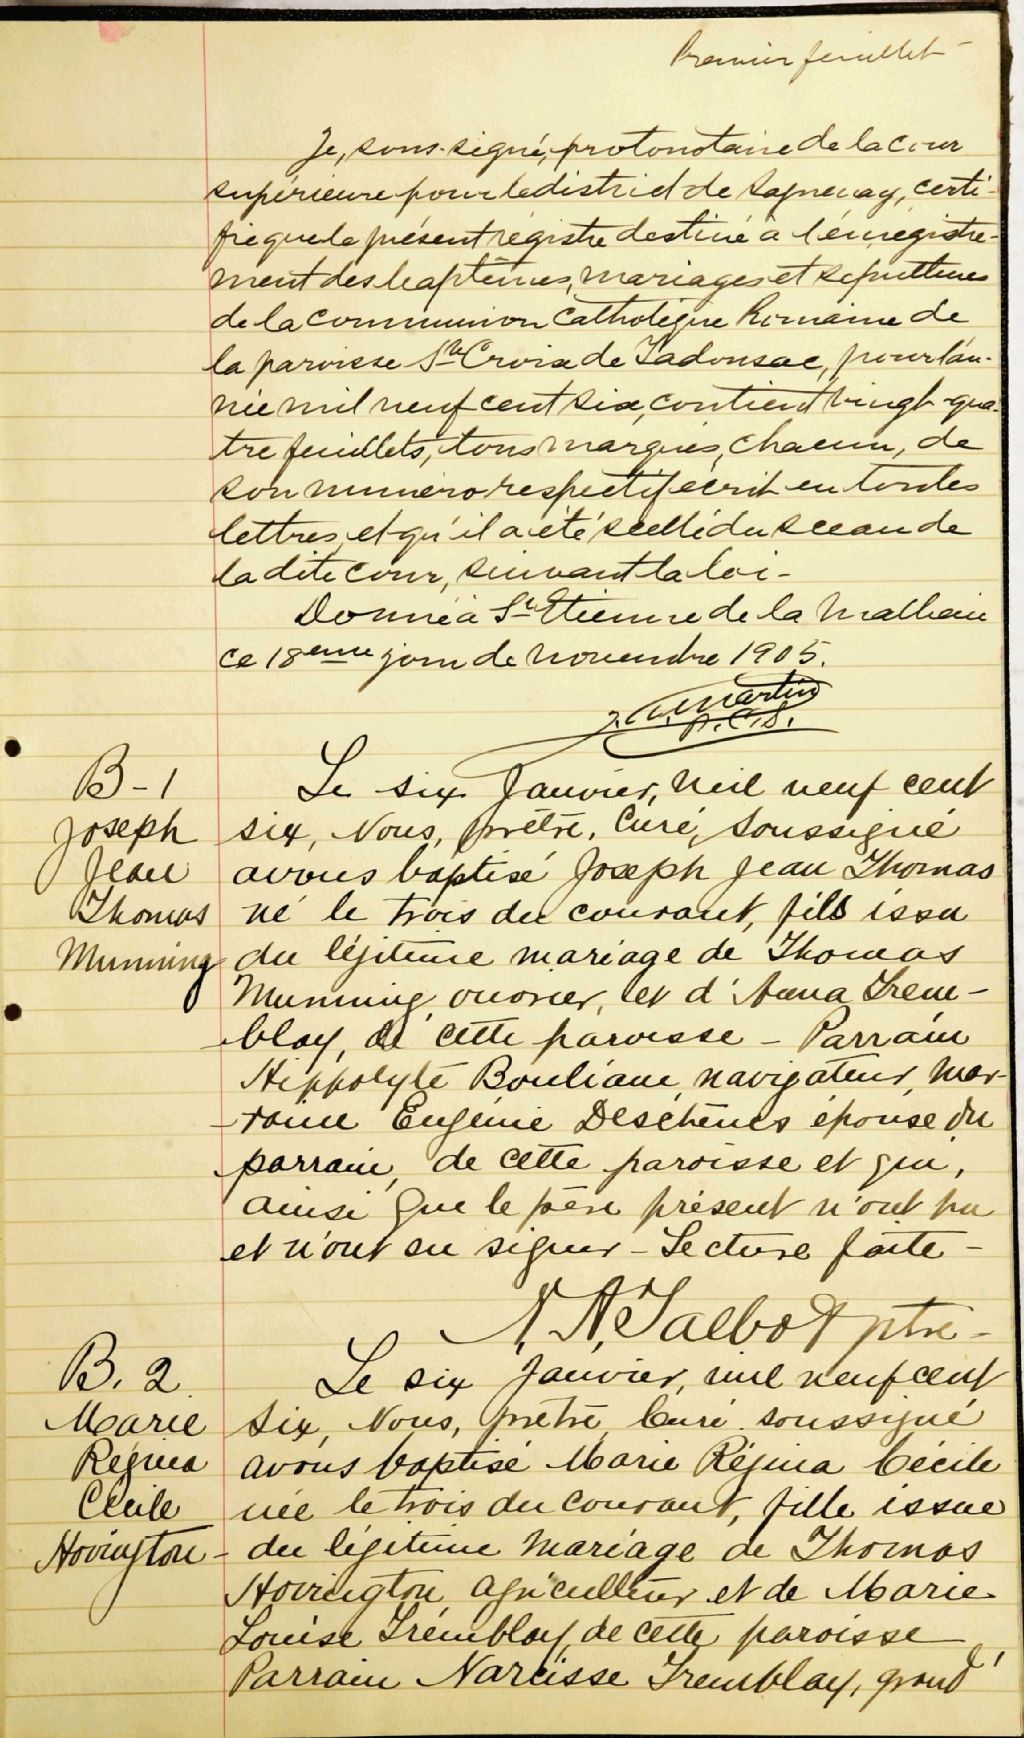 Premier feuillet
Je, sous-signé, protonotaire de la Cour
supérieure pour le district de Saguenay, certi-
fie que le présent régistre destiné à l'énrégistre-
ment des baptêmes, mariages et sépultures
de la communion Catholique Romaine de
la paroisse Ste Croix de Tadousac, pour l'an-
née mil neuf cent six, contient vingt-qua-
tre feuillets, tous marqués, chacun, de
son numéro respectif écrit en toutes
lettres, et qu'il a été scellé du sceau de
la dite cour, suivant la loi-
Donné à St Etienne de la Malbaie
ce 18eme jour de novembre 1905.
Martin
P.C.S.
B-1
Joseph
Jean
Thomas
Munning
Le six Janvier, mil neuf cent
six, Nous, prêtre, Curé, soussigné
avons baptisé Joseph Jean Thomas
né le trois du courant, fils issu
du légitime mariage de Thomas
Munning, ouvrier, et d'Anna Trem-
blay, de cette paroisse - Parrain
Hippolyte Bouliane, navigateur, mar-
raine Eugénie Deschênes épouse du
parrain, de cette paroisse et qui,
ainsi que le père présent n'ont pu
et n'ont su signer - Lecture faite -
N. A. Talbot ptre -
B. 2
Marie
Régina
Cécile
Hovington
Le six Janvier, mil neuf cent
six, Nous, prêtre, Curé soussigné
avons baptisé Marie Régina Cécile
née le trois du courant, fille issue
du légitime mariage de Thomas
Hovington, agriculteur et de Marie
Louise Tremblay, de cette paroisse
Parrain Narcisse Tremblay, grand'